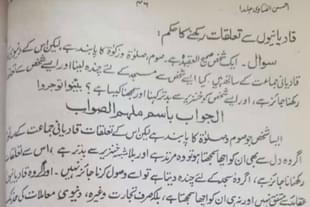 احسن الفتاویٰ جلد ۱ ۴۶
قادیانیوں سے تعلقات رکھنے کا حکم:
سوال: ایک شخص صحیح العقیدہ ہے، صوم، صلوٰۃ و زکوٰۃ کا پابند ہے لیکن اس کے دنیوی
قادیانی جماعت کے ساتھ ہیں کیا ایسے شخص سے مسجد کے لئے چندہ لینا اور ایسے شخص سے
رکھنا جائز ہے، اور ایسے شخص کو خنزیر سے بدتر کہنا اور سمجھنا کیسا ہے؟ بینوا توجروا
الجواب باسم ملہم الصواب
ایسا شخص جو صوم و صلوٰۃ کا پابند ہے لیکن اس کے تعلقات قادیانی جماعت کے سا
اگر وہ دل سے بھی ان کو اچھا سمجھتا ہو تو وہ مرتد ہے اور بلا شبہ خنزیر سے بدتر ہے، اس سے تعلق
رکھنا ناجائز ہے، اگر وہ مسجد کے لئے چندہ دیتا ہے تو اسے وصول کرنا جائز نہیں۔ اور اگر وہ قادیا
عقائد سے متفق نہیں اور نہ ہی ان کو اچھا سمجھتا ہے، بلکہ صرف تجارت وغیرہ، دنیوی معاملات کی حد تک